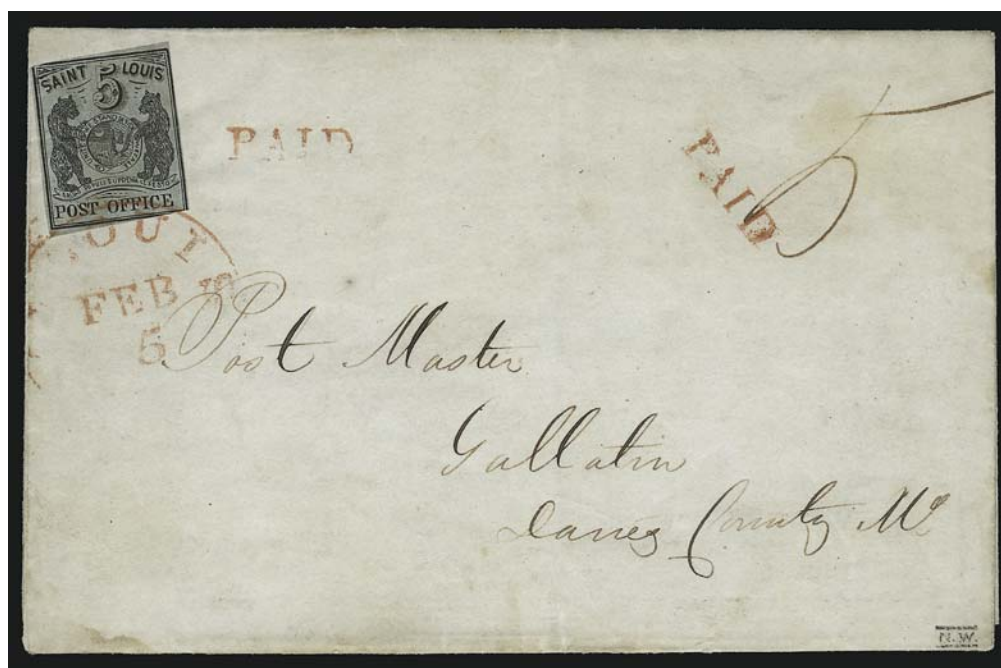 SAINT 5 LOUIS
POST OFFICE
PAID
PAID
5
FEB
5
Post Master
Gallatin
Daves County Mo
N.W.